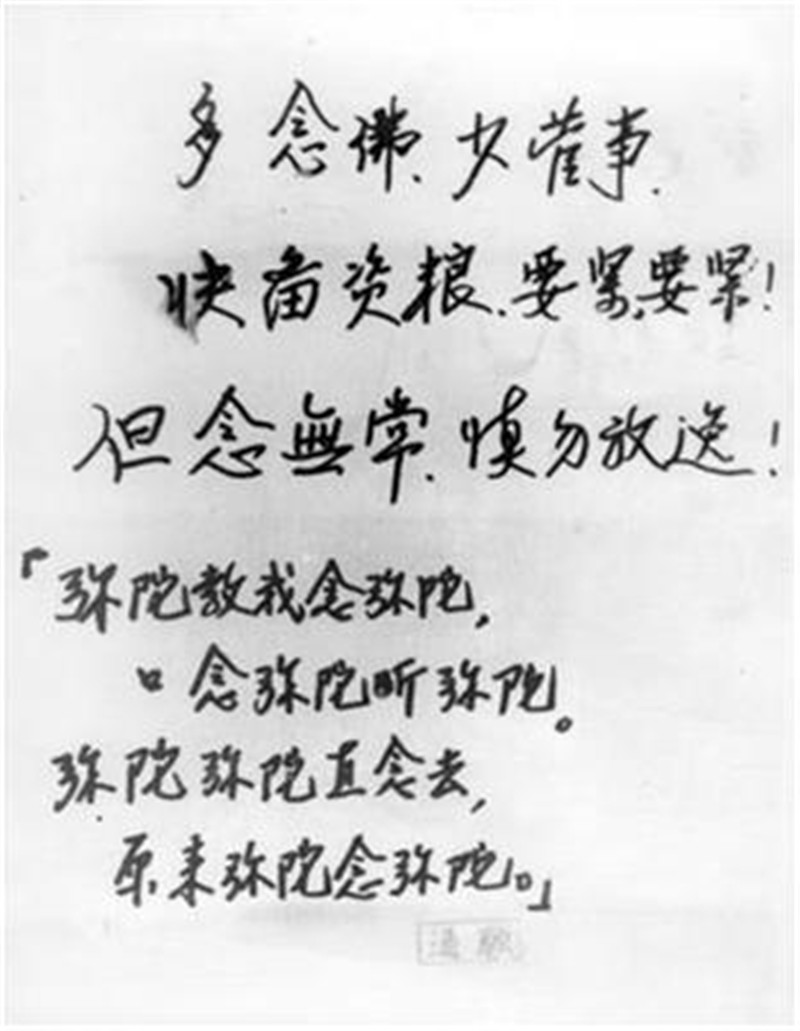 多念佛、少管事、
快备资粮、要紧,要紧!
但念無常、慎勿放逸!
「弥陀教我念弥陀,
口念弥陀听弥陀。
弥陀弥陀直念去,
原来弥陀念弥陀。」